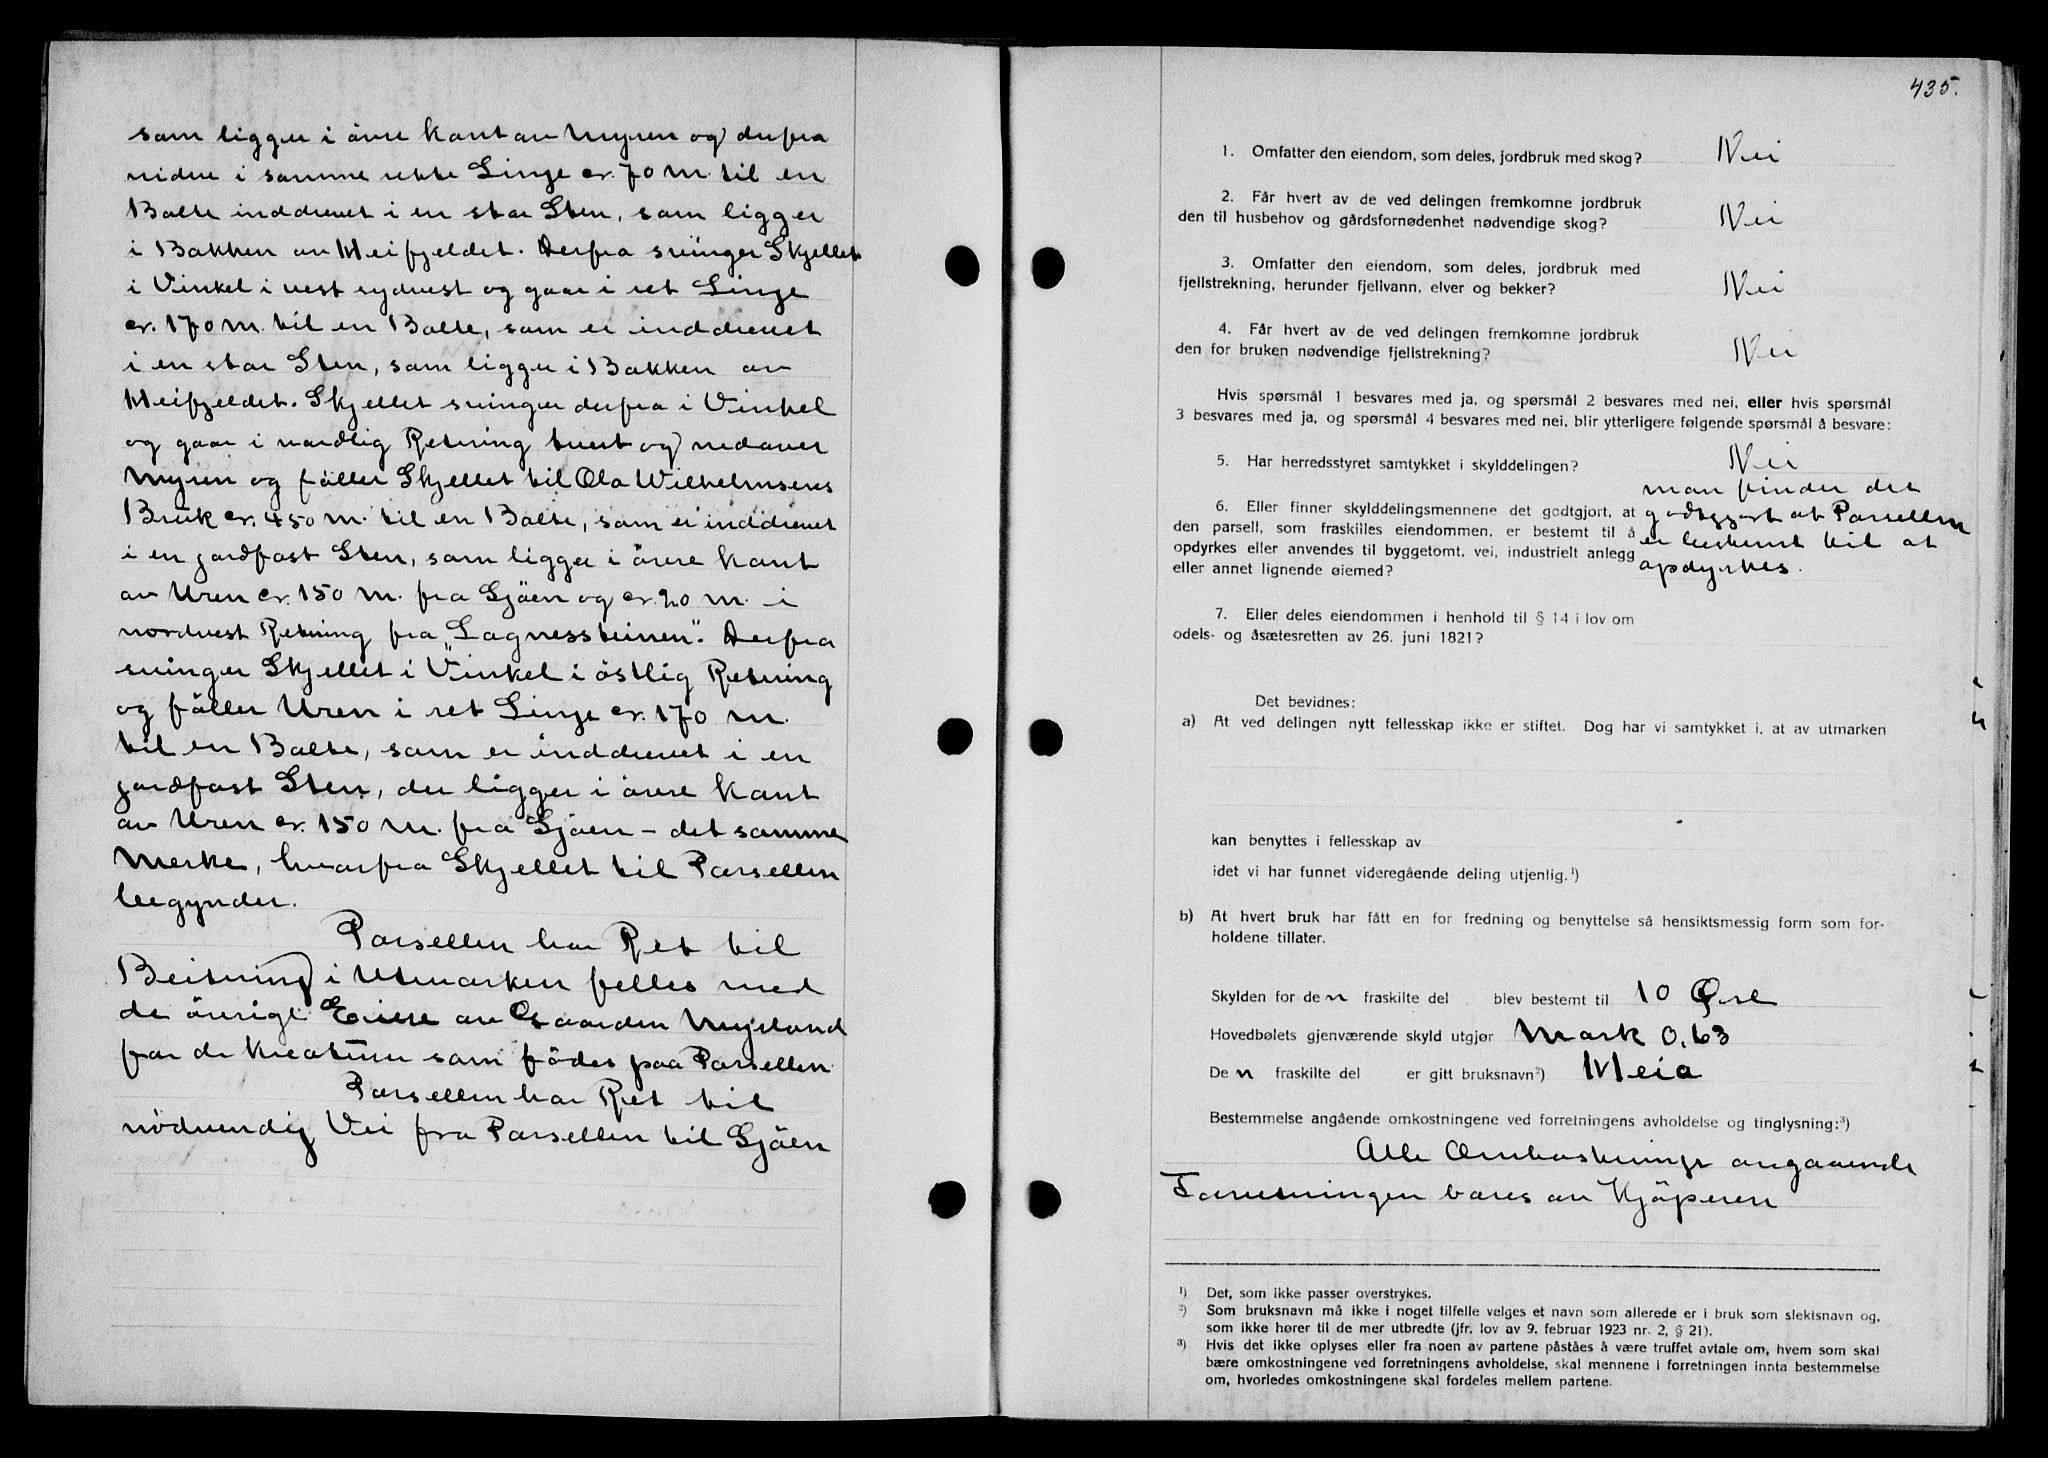 som ligger i övre kant av Myren og derfra
videre i samme rette Linje cr. 70 m. til en
Bolte inddrevet i en stor Sten, som ligger
i Bakken av Meifjeldet. Derfra svinger Skjellet
i Vinkel i vest sydvest og gaar i ret Linje
cr. 170 m. til en Bolte, som er inddrevet
i en stor Sten, som ligger i Bakken av
Meifjeldet. Skjellet svinger derfra i Vinkel
og gaar i nordlig Retning tvert og nedover
Myren og föller Skjellet til Ola Wilhelmsens
Bruk cr. 450 m. til en Bolte, som er inddrevet
i en jordfast Sten, som ligger i övre Kant
av Uren cr. 150 m. fra Sjöen og cr. 20 m. i
nordvest Retning fra „Lagnessteinen". Derfra
svinger Skjellet i Vinkel i östlig Retning
og föller Uren i ret Linje cr. 170 m.
til en Bolte, som er inddrevet i en
jordfast Sten, der ligger i övre Kant
av Uren cr. 150 m. fra Sjöen – det samme
Merke, hvorfra Skjellet til Parsellen
begynder.
Parsellen har Ret til
Beitning i Utmarken felles med
de övrige Eiere av Gaarden Myrland
for de Kreaturer som födes paa Parsellen
Parsellen har Ret til
nödvendig Vei fra Parsellen til Sjöen
435.
1. Omfatter den eiendom, som deles, jordbruk med skog? Nei
2. Får hvert av de ved delingen fremkomne jordbruk
den til husbehov og gårdsfornødenhet nødvendige skog? Nei
3. Omfatter den eiendom, som deles, jordbruk med
fjellstrekning, herunder fjellvann, elver og bekker? Nei
4. Får hvert av de ved delingen fremkomne jordbruk
den for bruken nødvendige fjellstrekning? Nei
Hvis spørsmål 1 besvares med ja, og spørsmål 2 besvares med nei, eller hvis spørsmål
3 besvares med ja, og spørsmål 4 besvares med nei, blir ytterligere følgende spørsmål å besvare:
5. Har herredsstyret samtykket i skylddelingen? Nei
man finder det
6. Eller finner skylddelingsmennene det godtgjort, at godtgjort at Parsellen
den parsell, som fraskilles eiendommen, er bestemt til å
opdyrkes eller anvendes til byggetomt, vei, industrielt anlegg er bestemt til at
eller annet lignende øiemed? opdyrkes.
7. Eller deles eiendommen i henhold til § 14 i lov om
odels- og åsætesretten av 26. juni 1821?
Det bevidnes:
a) At ved delingen nytt fellesskap ikke er stiftet. Dog har vi samtykket i, at av utmarken
kan benyttes i fellesskap av
idet vi har funnet videregående deling utjenlig.¹)
b) At hvert bruk har fått en for fredning og benyttelse så hensiktsmessig form som for-
holdene tillater.
Skylden for den fraskilte del blev bestemt til 10 Øre
Hovedbølets gjenværende skyld utgjør Mark 0,63
Den fraskilte del er gitt bruksnavn²) Meia
Bestemmelse angående omkostningene ved forretningens avholdelse og tinglysning:³)
Alle Omkostninger angaaende
Forretningen bæres av Kjöperen
¹) Det, som ikke passer overstrykes.
²) Som bruksnavn må ikke i noget tilfelle velges et navn som allerede er i bruk som slektsnavn og,
som ikke hører til de mer utbredte (jfr. lov av 9. februar 1923 nr. 2, § 21).
³) Hvis det ikke oplyses eller fra noen av partene påståes å være truffet avtale om, hvem som skal
bære omkostningene ved forretningens avholdelse, skal mennene i forretningen innta bestemmelse
om, hvorledes omkostningene skal fordeles mellem partene.